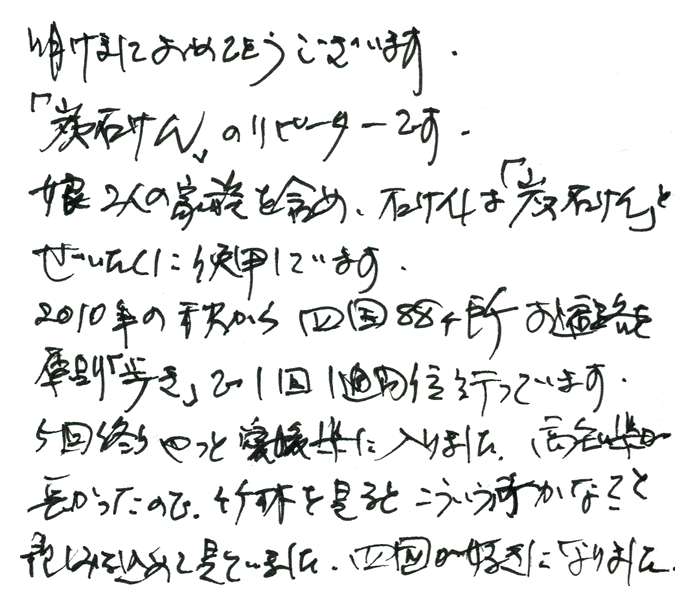 明けましておめでとうございます.
「炭石けん」のリピーターです.
娘2人の家族を含め、石けんは「炭石けん」と
ぜいたくに使用しています.
2010年の秋から四国88ヶ所お遍路を
「歩き」で1回1週間位行っています.
5回終りやっと愛媛県に入りました. 高知県が
長かったので、竹林を見るとこういう所かなぁと
親しみを込めて見ていました. 四国が好きになりました.